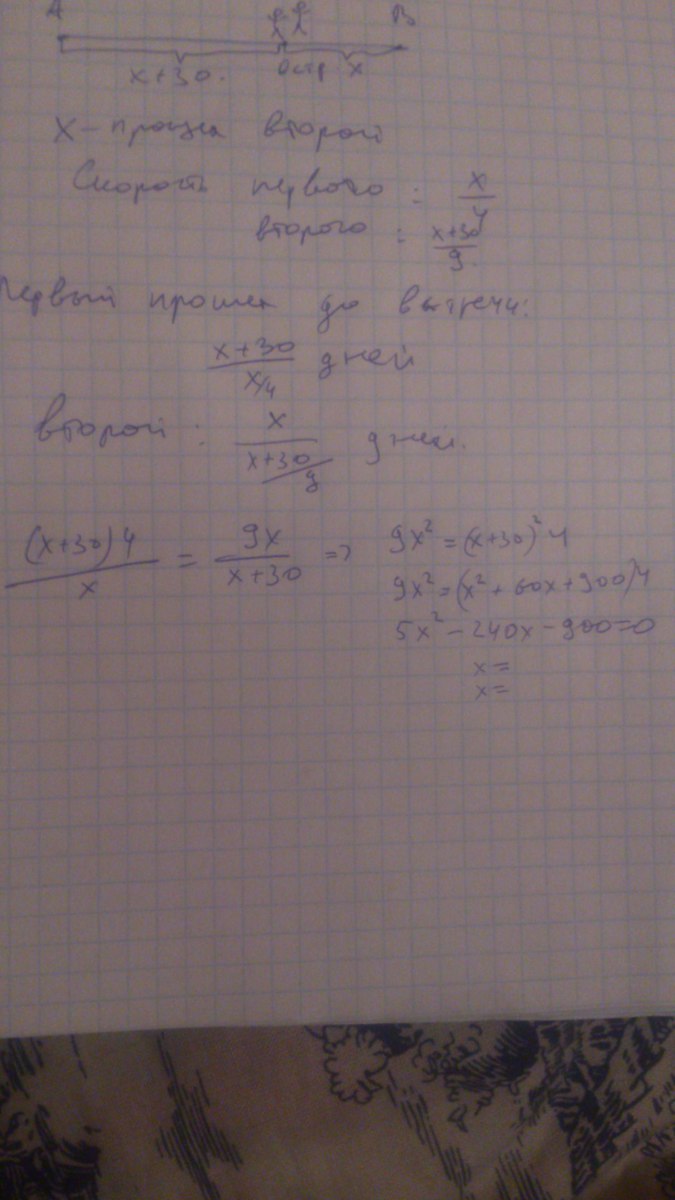 A B
x+30. x
x – прошел второй
Скорость первого : x/4
второго : x+30/9
Первый прошел до встречи:
x+30/x/4 дней
второй : x/x+30/9 дней.
(x+30)4/x = 9x/x+30 => 9x² = (x+30)²4
9x² = (x² + 60x + 900)4
5x² – 240x – 900=0
x =
x =